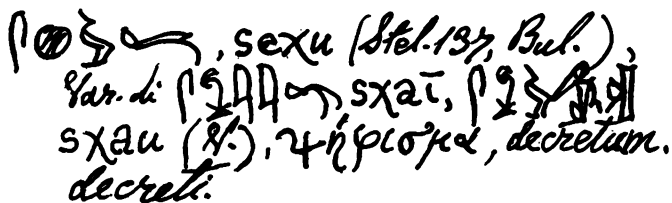 , seχu (Stel. 137, Bul.),
Var. di , sχaī,
sχau (N.), ψήφισμα, decretum.
decreti.